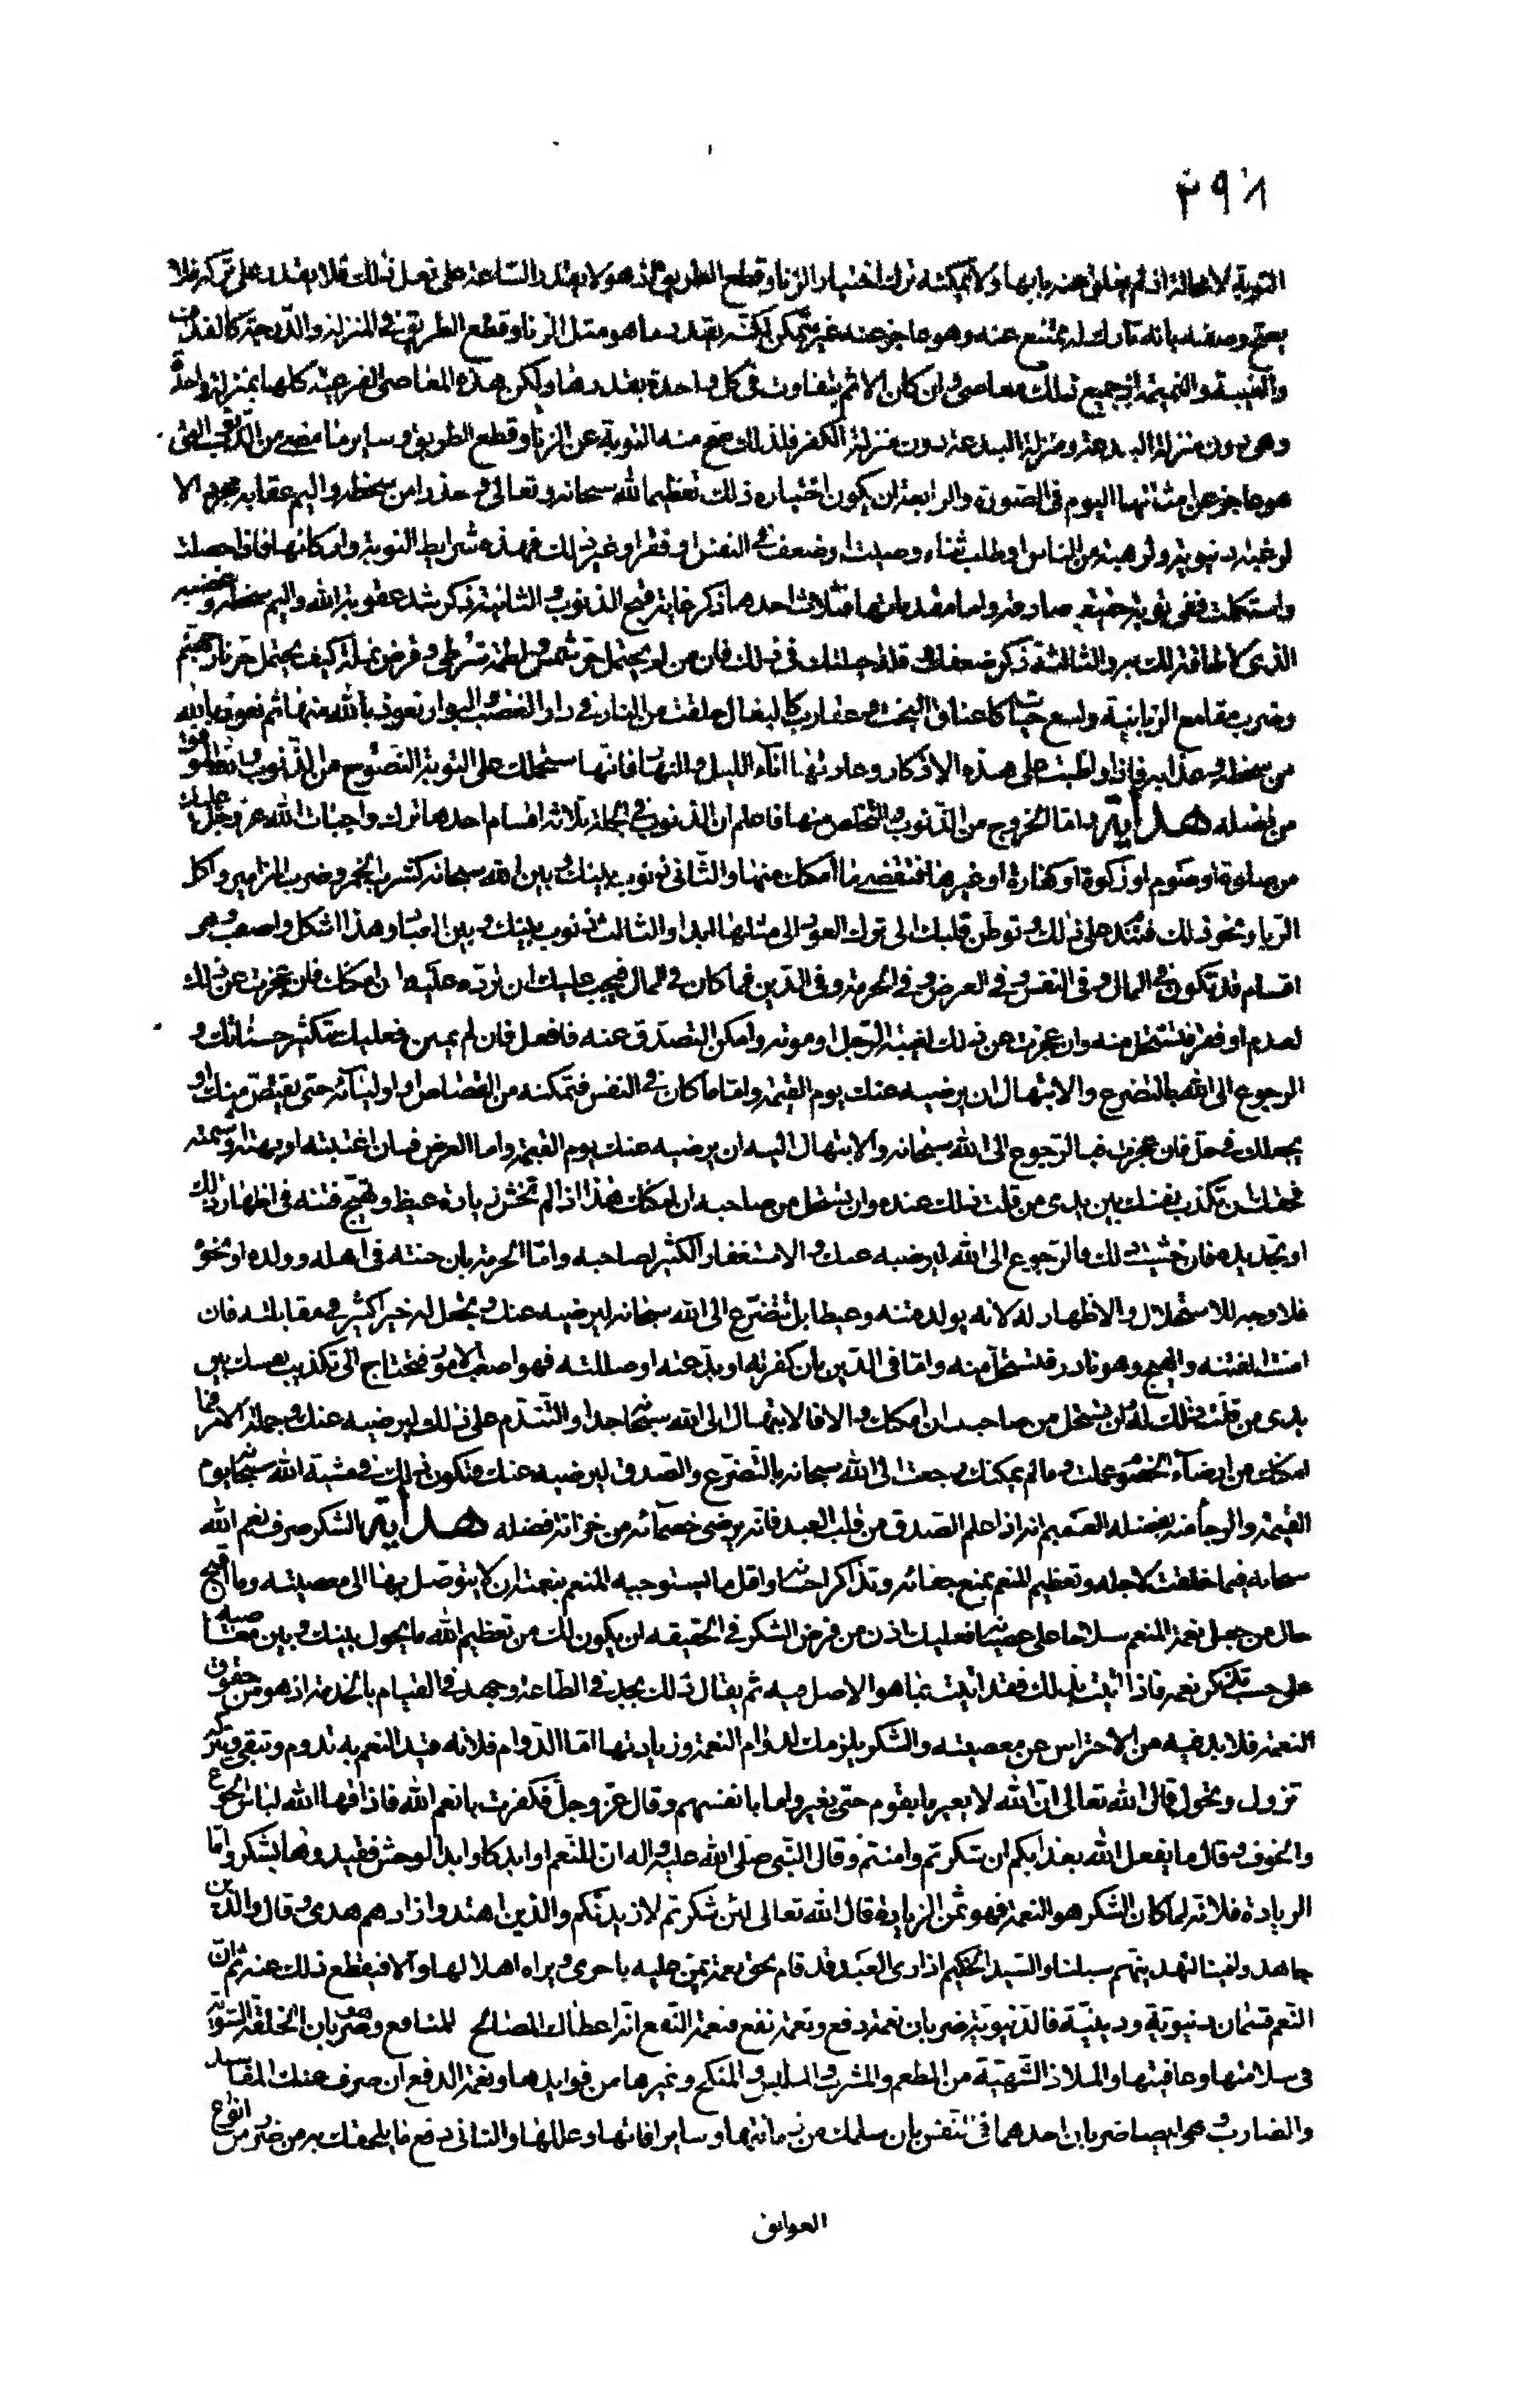 ٢٩٨
التوبة لا محالة اذ لم يغلق عنه بابها ولا يمكنه ترك اختيار الزنا وقطع الطريق اذ هو لا يقدر الساعة على فعل ذلك فلا يقدر على تركه فلا
يصح وصفه بانه تارك له ممتنع عنه وهو عاجز عنه غير متمكن لكنه يقدر ما هو مثل الزنا وقطع الطريق في المنزلة والدرجة كالقذف
والغيبة والنميمة اذ جميع ذلك معاصى وان كان الاثم يتفاوت في كل واحدة بقدرها ولكن هذه المعاصى الفرعية كلها بمنزلة واحدة
وهى دون منزلة البدعة ومنزلة البدعة دون منزلة الكفر فلذلك صح منه التوبة عن الزنا وقطع الطريق وساير ما مضى من الذنوب التى
هو عاجز عن امثالها اليوم في الصورة والرابعة ان يكون اختياره ذلك تعظيما لله سبحانه وتعالى و حذرا من سخطه واليم عقابه مجردا لا
لرغبة دنيوية ولرهبة من الناس او طلب ثناء وصيت او ضعف في النفس او فقر او غير ذلك فهذه شرايط التوبة واركانها فاذا حصلت
واستكملت فهى توبة حقيقية صادقة واما مقدماتها فثلاث احدها ذكر غاية قبح الذنوب و الثانية ذكر شدة عقوبة الله واليم سخطه وغضبه
الذى لا طاقة لك به والثالثة ذكر ضعفك و قلة حيلتك في ذلك فان من لم يحتمل حر شمس ولطمة شرطى وقرص نملة كيف يحتمل حر نار جهنم
وضرب مقامع الزبانية ولسع حيات كاعناق البخت وعقارب كالبغال خلقت من النار في دار الغضب والبوار نعوذ بالله منها ثم نعوذ بالله
من سخطه وعذابه فاذا واظبت على هذه الاذكار وعاودتها اناء الليل والنهار فانها ستحملك على التوبة النصوح من الذنوب والله الموفق
من بفضله هداية واما الخروج من الذنوب والتخلص منها فاعلم ان الذنوب في الجملة ثلاثة اقسام احدها ترك واجبات الله عز وجل عليك
من صلوة او صوم او زكوة او كفارة او غيرها فتقضى ما امكنك منها والثانى ذنوب بينك وبين الله سبحانه كشرب الخمر وضرب المزامير واكل
الربا ونحو ذلك فتندم على ذلك وتوطن قلبك الى ترك العود الى مثلها ابدا والثالث ذنوب بينك وبين العباد وهذا اشكل واصعب وهى
اقسام قد تكون في المال وفى النفس وفى العرض وفى الحرمة وفى الدين فما كان في المال فيجب عليك ان ترده عليه ان امكنك فان عجزت عن ذلك
لعدم او فقر فتستحل منه وان عجزت عن ذلك لغيبة الرجل او موته وامكن التصدق عنه فافعل فان لم يمكن فعليك بتكثير حسناتك و
الرجوع الى الله بالتضرع والابتهال ان يرضيه عنك يوم القيمة واما ما كان في النفس فتمكنه من القصاص او اوليائه حتى يقتص منك او
يجعلك في حل فان عجزت فبالرجوع الى الله سبحانه والابتهال اليه ان يرضيه عنك يوم القيمة واما العرض فان اغتبته او بهته او شتمته
فحقك ان تكذب نفسك بين يدى من قلت ذلك عنده وان تستحل من صاحبه ان امكنك هذا اذا لم تخش زيادة غيظ وتهيج فتنة في اظهار ذلك
او تجديده فان خشيت ذلك فالرجوع الى الله ليرضيه عنك و الاستغفار الكثير لصاحبه واما الحرمة بان خنته في اهله وولده او نحوه
فلا وجه للاستحلال والاظهار له لانه يولد فتنة وغيظا بل تتضرع الى الله سبحانه ليرضيه عنك و يجعل له خيرا كثيرا في مقابلته فان
امنت الفتنة والهيج وهو نادر فتستحل منه واما في الدين بان كفرته او بدعته او ضللته فهو اصعب الامور فتحتاج الى تكذيب نفسك بين
يدى من قلت ذلك له وان تستحل من صاحبه ان امكنك و الا فالابتهال الى الله سبحانه جدا والتندم على ذلك ليرضيه عنك وجملة الامر فما
امكنك من ارضاء الخصوم عملت و ما لم يمكنك رجعت الى الله سبحانه بالتضرع والصدق ليرضيه عنك فيكون ذلك في مشية الله سبحانه يوم
القيمة والرجاء منه بفضله العميم انه اذا علم الصدق من قلب العبد فانه يرضى خصمائه من خزانة فضله هداية الشكر صرف نعم الله
سبحانه فيما خلقت لاجله وتعظيم المنعم بمنع جفائه وتذاكر احسانه واقل ما يستوجبه المنعم بنعمته ان لا يتوصل بها الى معصيته وما اقبح
حال من جعل نعمة المنعم سلاحا على عصيانه فعليك اذن من فرض الشكر في الحقيقة ان يكون لك من تعظيم الله ما يحول بينك وبين معاصيه
على حسب تذكر نعمه فاذا اتيت بذلك فقد اتيت بما هو الاصل فيه ثم يقابل ذلك بجد في الطاعة وجهد في القيام بالخدمة اذ هو من حقوق
النعمة فلا بد فيه من الاحتراس عن معصيته والشكر يلزمك لدوام النعمة وزيادتها اما الدوام فلانه قيد النعم به تدوم وتبقى وبتركه
تزول وتحول قال الله تعالى ان الله لا يغير ما بقوم حتى يغيروا ما بانفسهم وقال عز وجل فكفرت بانعم الله فاذاقها الله لباس الجوع
والخوف وقال ما يفعل الله بعذابكم ان شكرتم وامنتم وقال النبى صلى الله عليه واله ان للنعم اوابد كاوابد الوحش فقيدوها بالشكر واما
الزيادة فلانه لما كان الشكر هو قيد النعمة فهو ثمن الزيادة قال الله تعالى لئن شكرتم لازيدنكم والذين اهتدوا زادهم هدى وقال والذين
جاهدوا فينا لنهدينهم سبلنا والسيد الحكيم اذا راى العبد قد قام بحق نعمة يمن عليه باخرى ويراه اهلا لها والا فيقطع ذلك عنه ثم ان
النعم قسمان دنيوية ودينية فالدنيوية ضربان نعمة دفع ونعمة نفع فنعمة النفع انه اعطاك المصالح والمنافع وهى ضربان الخلقة السوية
في سلامتها وعافيتها والملاذ الشهية من المطعم والمشرب والملبس والمنكح وغيرها من فوايدها ونعمة الدفع ان صرف عنك المفاسد
والمضار وهى ايضا ضربان احدهما في النفس بان سلمك من زمانتها وساير افاتها وعللها والثانى دفع ما يلحقك به من ضرر من انواع
العوايق